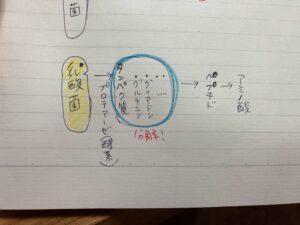 菌
乳酸菌
プロテアーゼ(酵素)
タンパク質
・グルテニン
・グリアジン
・・・
分解!
ペプチド
アミノ酸